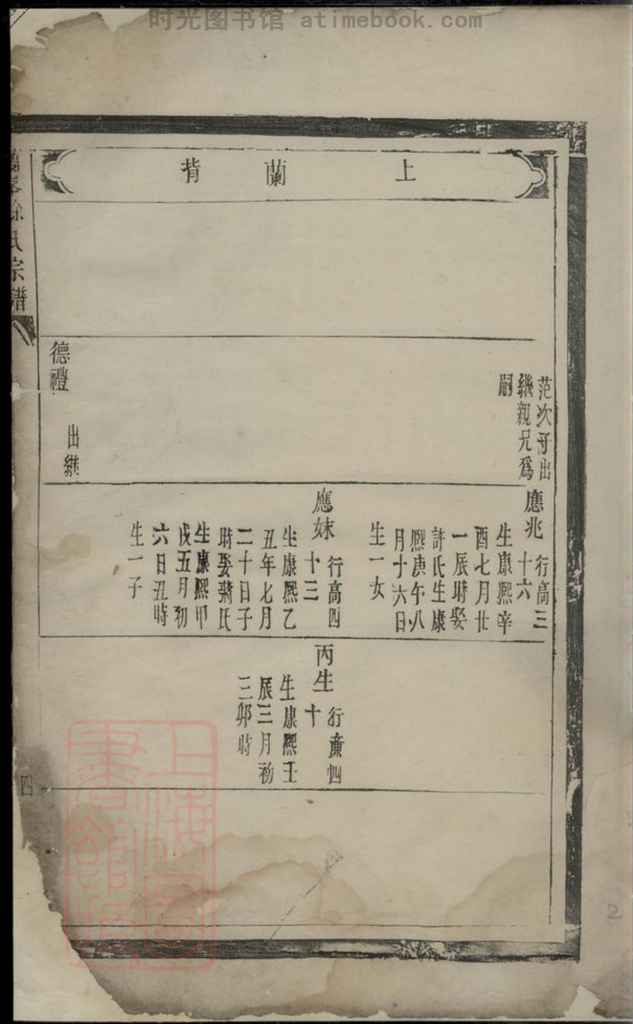 时光图书馆 atimebook.com
上蘭背
范次子出
繼親兄為
嗣
德禮
出繼
應兆
行高三
十六
生康熙辛
酉七月廿
一辰時娶
許氏生康
熙庚午八
月十六日
生一女
應妹
行高四
十三
生康熙乙
丑年七月
二十日子
時娶
氏
生康熙甲
戌五月初
六日丑時
生一子
丙生
行賡四
十
生康熙壬
辰三月初
三卯時
氏宗譜
四
2